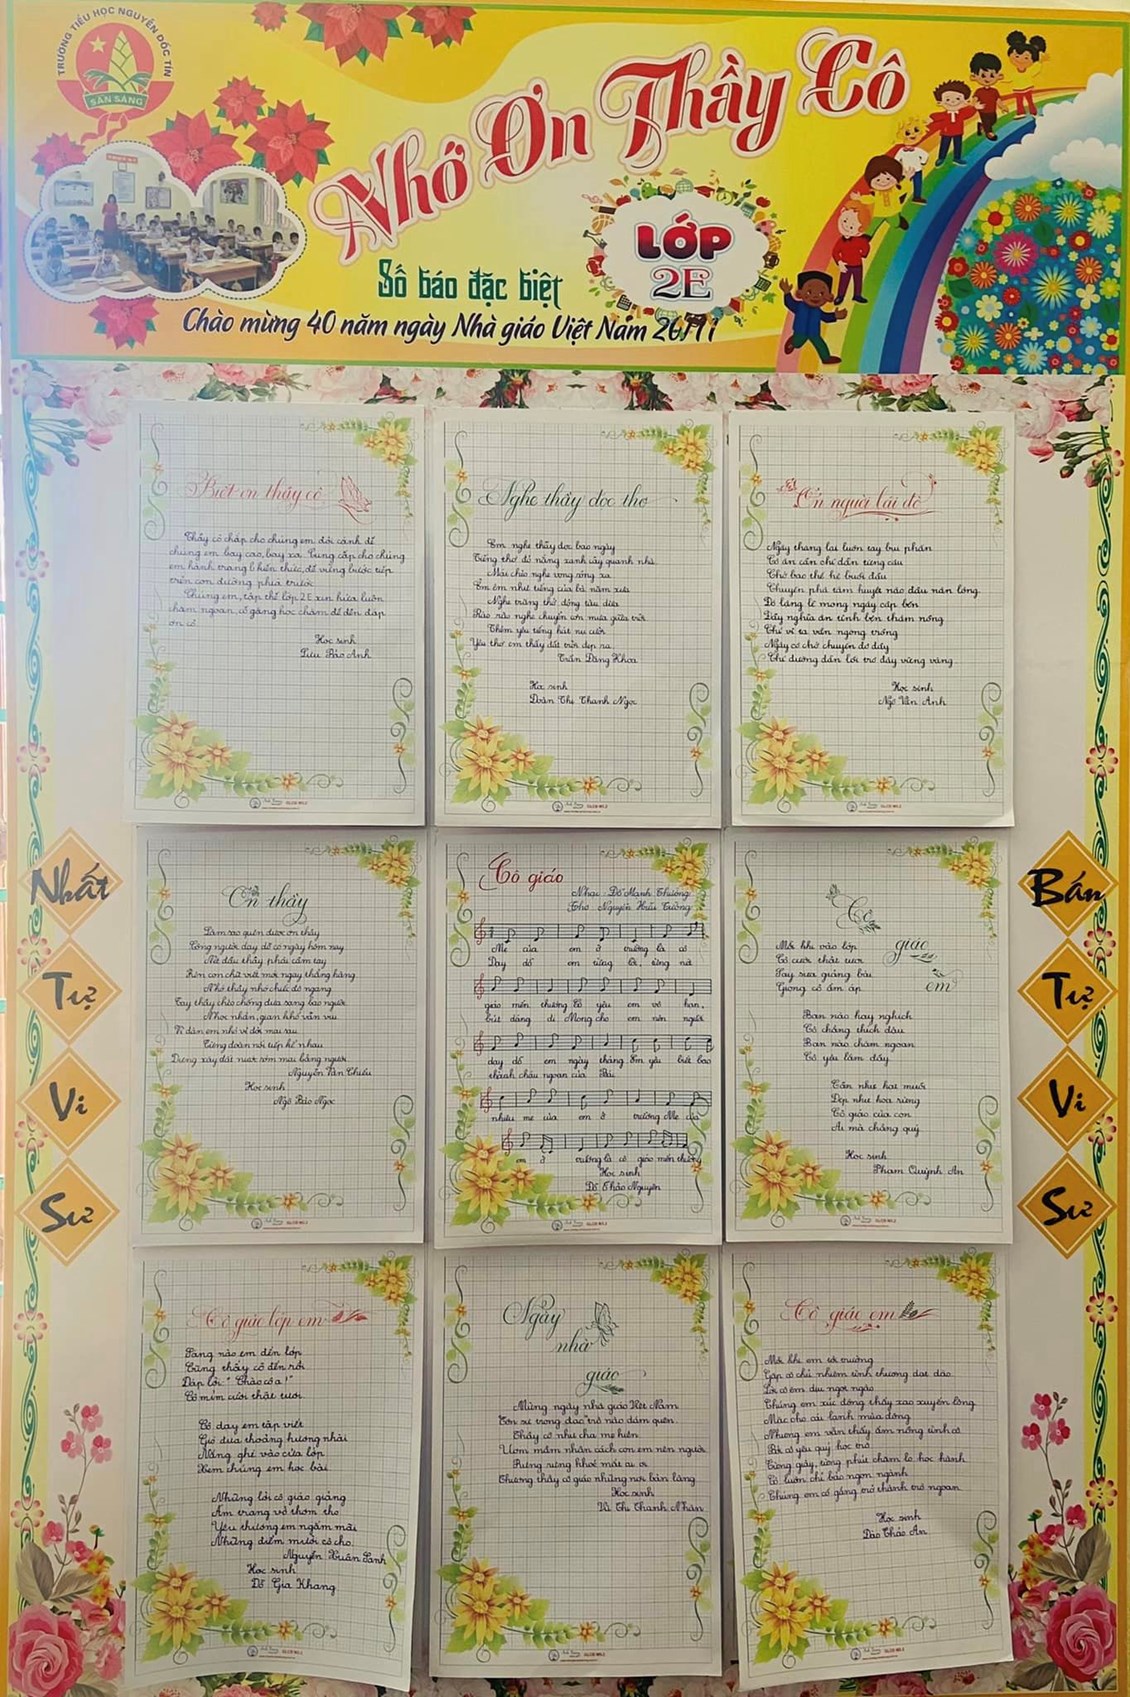 TRƯỜNG TIỂU HỌC NGUYỄN DỐC TÍN
SẴN SÀNG
Nhớ Ơn Thầy Cô
LỚP
2E
Số báo đặc biệt
Chào mừng 40 năm ngày Nhà giáo Việt Nam 20/11
Biết ơn thầy cô
Thầy cô chắp cho chúng em đôi cánh để
chúng em bay cao, bay xa. Cung cấp cho chúng
em hành trang kiến thức, để vững bước tiếp
trên con đường phía trước.
Chúng em, tập thể lớp 2E xin hứa luôn
chăm ngoan, cố gắng học chăm để đền đáp
ơn cô.
Học sinh
Lưu Bảo Anh
Nghe thầy đọc thơ
Em nghe thầy đọc bao ngày
Tiếng thơ đỏ nắng xanh cây quanh nhà
Mái chèo nghe vọng sông xa
Êm êm như tiếng của bà năm xưa
Nghe trăng thở động tàu dừa
Rào rào nghe chuyển cơn mưa giữa trời
Thêm yêu tiếng hát nụ cười
Yêu thơ em thấy đất trời đẹp ra.
Trần Đăng Khoa
Học sinh
Đoàn Thị Thanh Ngọc
Ơn người lái đò
Ngày tháng lại luôn tay bụi phấn
Cô ân cần chỉ dẫn từng câu
Thờ bao thế hệ buổi đầu
Chuyến phà tâm huyết nào đâu nản lòng.
Đò lặng lẽ mong ngày cập bến
Đầy nghĩa ân tình bến thắm nồng
Thế vì ta vẫn ngóng trông
Ngày cô chở chuyến đò đầy
Chỉ đường dẫn lối trò đầy vững vàng
Học sinh
Ngô Vân Anh
Ơn thầy
Làm sao quên được ơn thầy
Công người dạy dỗ có ngày hôm nay
Nét đầu thầy phải cầm tay
Rèn con chữ viết mới ngay thẳng hàng
Nhớ thầy nhớ chuyến đò ngang
Tay thầy chèo chống đưa sang bao người
Nhọc nhằn, gian khó vẫn vui
Vì đàn em nhỏ vì đời mai sau
Từng đoàn nối tiếp kề nhau
Dựng xây đất nước sớm mai bằng người.
Nguyễn Văn Thiều
Học sinh
Ngô Bảo Ngọc
Cô giáo
Nhạc: Đỗ Mạnh Thường
Thơ Nguyễn Hữu Tưởng
Mẹ của em ở trường là cô
Dạy dỗ em từng lời, từng nét
giáo mến thương Cô yêu em vô hạn,
bút dáng đi Mong cho em nên người
dạy dỗ em ngày tháng Em yêu biết bao
thành cháu ngoan của Bác
nhiêu mẹ của em ở trường Mẹ của
em ở trường là cô giáo mến thương
Học sinh
Đỗ Thảo Nguyên
Cô
giáo
em
Mỗi khi vào lớp
Cô cười thật tươi
Say sưa giảng bài
Giọng cô ấm áp
Bạn nào hay nghịch
Cô chẳng thích đâu
Bạn nào chăm ngoan
Cô yêu lắm đấy.
Cần như hạt muối
Đẹp như hoa rừng
Cô giáo của con
Ai mà chẳng quý.
Học sinh
Phạm Quỳnh An
Nhất
Tự
Vi
Sư
Bán
Tự
Vi
Sư
Cô giáo lớp em
Sáng nào em đến lớp
Cũng thấy cô đến rồi
Đáp lời "Chào cô ạ!"
Cô mỉm cười thật tươi
Cô dạy em tập viết
Gió đưa thoảng hương nhài
Nắng ghé vào cửa lớp
Xem chúng em học bài
Những lời cô giáo giảng
Ấm trang vở thơm tho
Yêu thương em ngắm mãi
Những điểm mười cô cho.
Nguyễn Xuân Sanh
Học sinh
Đỗ Gia Khang
Ngày
nhà
giáo
Mừng ngày nhà giáo Việt Nam
Tôn sư trọng đạo trò nào dám quên.
Thầy cô như cha mẹ hiền
Ươm mầm nhân cách con em nên người
Rưng rưng khoé mắt ai ơi
Thương thầy cô giáo những nơi bản làng
Học sinh
Vũ Thị Thanh Nhàn
Cô giáo em
Mỗi khi em tới trường
Gặp cô chủ nhiệm tình thương dạt dào
Lời cô êm dịu ngọt ngào
Chúng em xúc động thấy xao xuyến lòng
Mặc cho cái lạnh mùa đông
Nhưng em vẫn thấy ấm nồng tình cô
Bởi cô yêu quý học trò
Từng giây, từng phút chăm lo học hành
Cô luôn chỉ bảo ngọn ngành
Chúng em cố gắng trở thành trò ngoan
Học sinh
Đào Thảo An